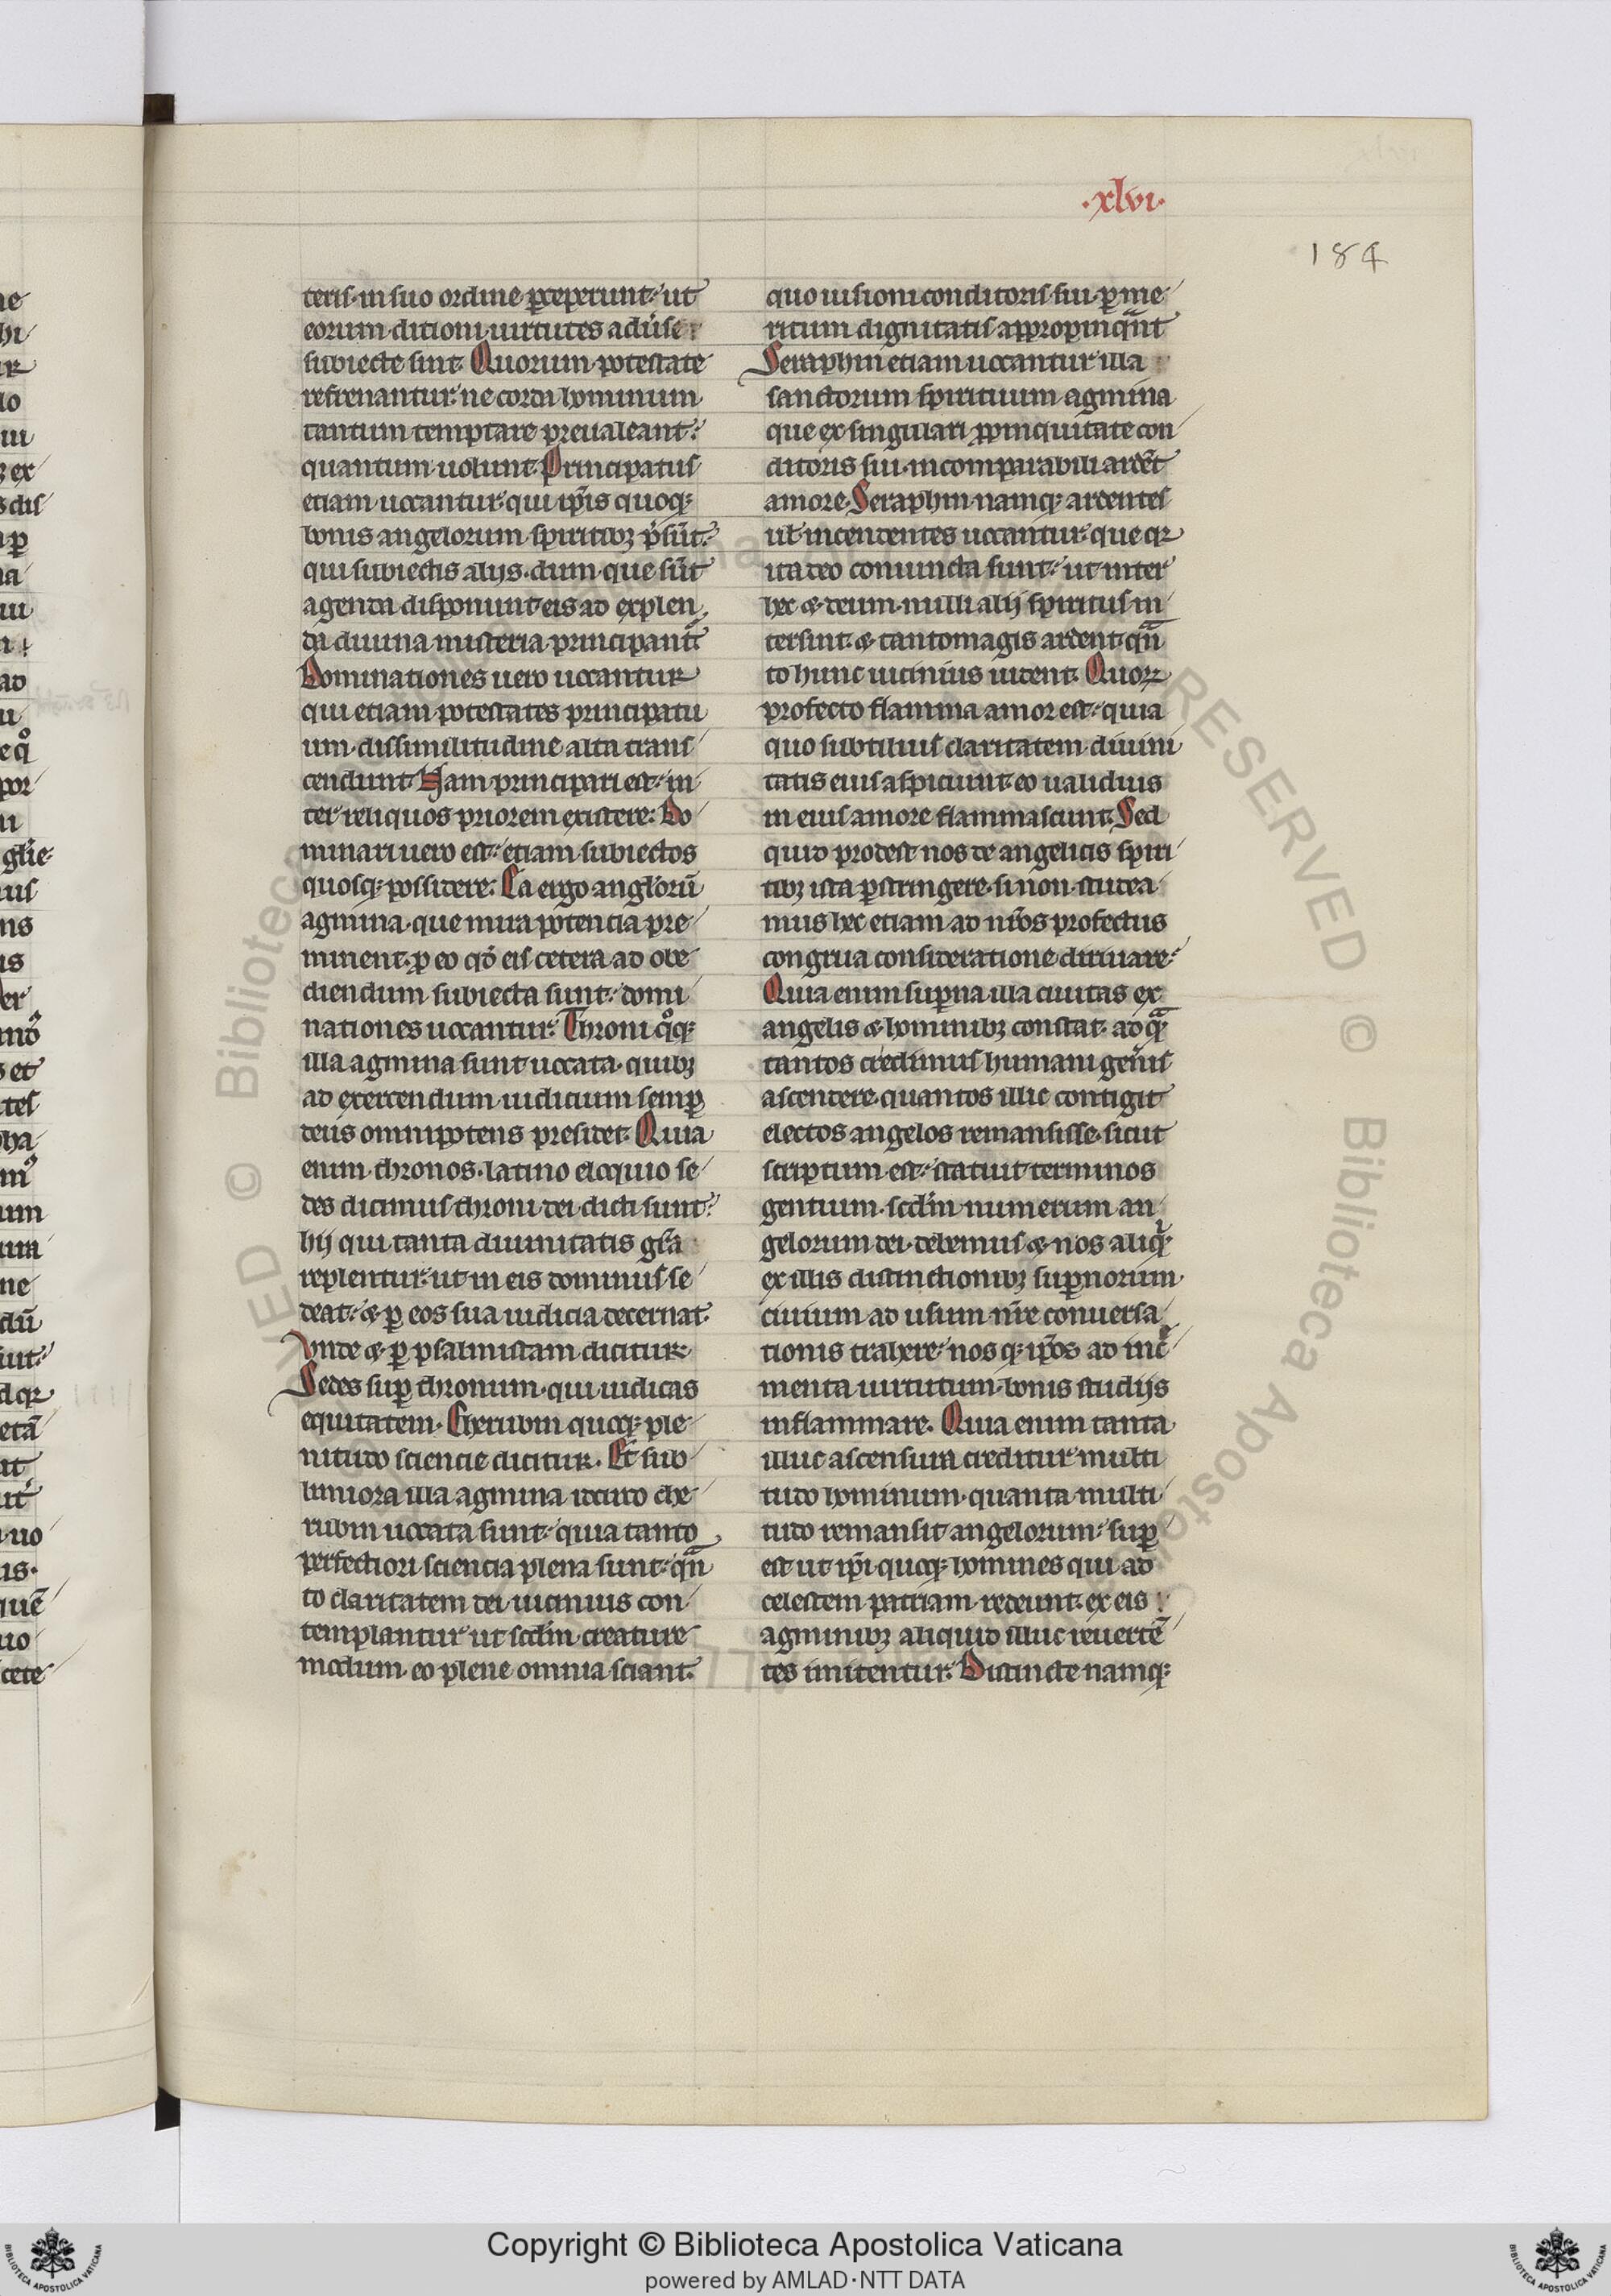 ·xlvi·
184
teris· in suo ordine p̱ceperunt· ut
eorum· ditioni uirtutes aduˀse
subiecte sint. Quorum· potestate
refrenantur· ne corda hominum
tantum temptare preualeant·
quantum uolunt. Principatus
etiam uocantur· qui ip̄is quoqꝫ
bonis angelorum· spiritibꝫ p̄sūt·
qui subiectis alijs· dum· que sūt
agenda disponunt· eis ad explen
dā diuina misteria principant᷑
Dominationes uero uocantur
qui etiam potestates principatu
um· dissimilitudine alta trans
cendunt. Nam principari est· in
ter reliquos priorem existere. Do
minari uero est· etiam subiectos
quosqꝫ possidere. Ea ergo angl̓orū
agmina· que mira potencia pre
minent· ꝓ eo qđ eis cetera ad obe
diendum subiecta sunt· domi
nationes uocantur. Throni qͦqꝫ
illa agmina sunt uocata· quibꝫ
ad exercendum iudicium semꝑ
deus omnipotens presidet. Quia
enim thronos· latino eloquio se
des dicimus throni dei dicti sunt·
hij qui tanta diuinitatis gr̄a
replentur· ut in eis dominus se
deat· ⁊ ꝑ eos sua iudicia decernat·
Vnde ⁊ ꝑ psalmistam dicitur·
Sedes suꝑ thronum· qui iudicas
equitatem· Cherubin quoqꝫ ple
nitudo sciencie dicitur· Et sub
limiora illa agmina idcirco che
rubin uocata sunt· quia tanto
perfectiori sciencia plena sunt· qͣn
to claritatem dei uicinius con
templantur· ut scđm creature
modum· eo plene omnia sciant·
quo uisioni conditoris sui· ꝑ me
ritum dignitatis appropinqͣnt
Seraphin etiam uocantur illa
sanctorum spirituum agmina
que ex singulari ꝓpinquitate con
ditoris sui· incomparabili ardēt
amore. Seraphin namqꝫ ardentes
ul̓ incendentes uocantur· que qꝛ
ita deo coniuncta sunt· ut inter
hec ⁊ deum· nulli alij spiritus in
tersint· ⁊ tantomagis ardent· qͣn
to hunc uicinius uident. Quoꝝ
profecto flamma amor est· quia
quo subtilius claritatem· diuini
tatis eius aspiciunt· eo ualidius
in eius amore flammascunt. Sed
quid prodest nos de angelicis spiri
tibꝫ ista ꝑstringere· si non· studea
mus hec etiam ad nr̄os profectus
congrua consideratione diriuare·
Quia enim suꝑna illa ciuitas ex
angelis ⁊ hominibꝫ constat· ad qͣ
tantos credimus humani gen̓is
ascendere· quantos illic contigit
electos angelos remansisse· sicut
scriptum est· statuit terminos
gentium· scđm numerum· an
gelorum dei· debemus ⁊ nos aliqͥ
ex illis distinctionibꝫ suꝑnorum
ciuium ad usum nr̄e conuersa
tionis trahere· nos qꝫ ip̄os ad incͬ
menta uirtutum· bonis studijs
inflammare. Quia enim tanta
illuc ascensura creditur multi
tudo hominum· quanta multi
tudo remansit angelorum· suꝑ
est ut ip̄i quoqꝫ homines qui ad
celestem patriam· redeunt· ex eis
agminibꝫ aliquid illuc reuertē
tes imitentur. Distincte namqꝫ
Copyright © Biblioteca Apostolica Vaticana
powered by AMLAD·NTT DATA